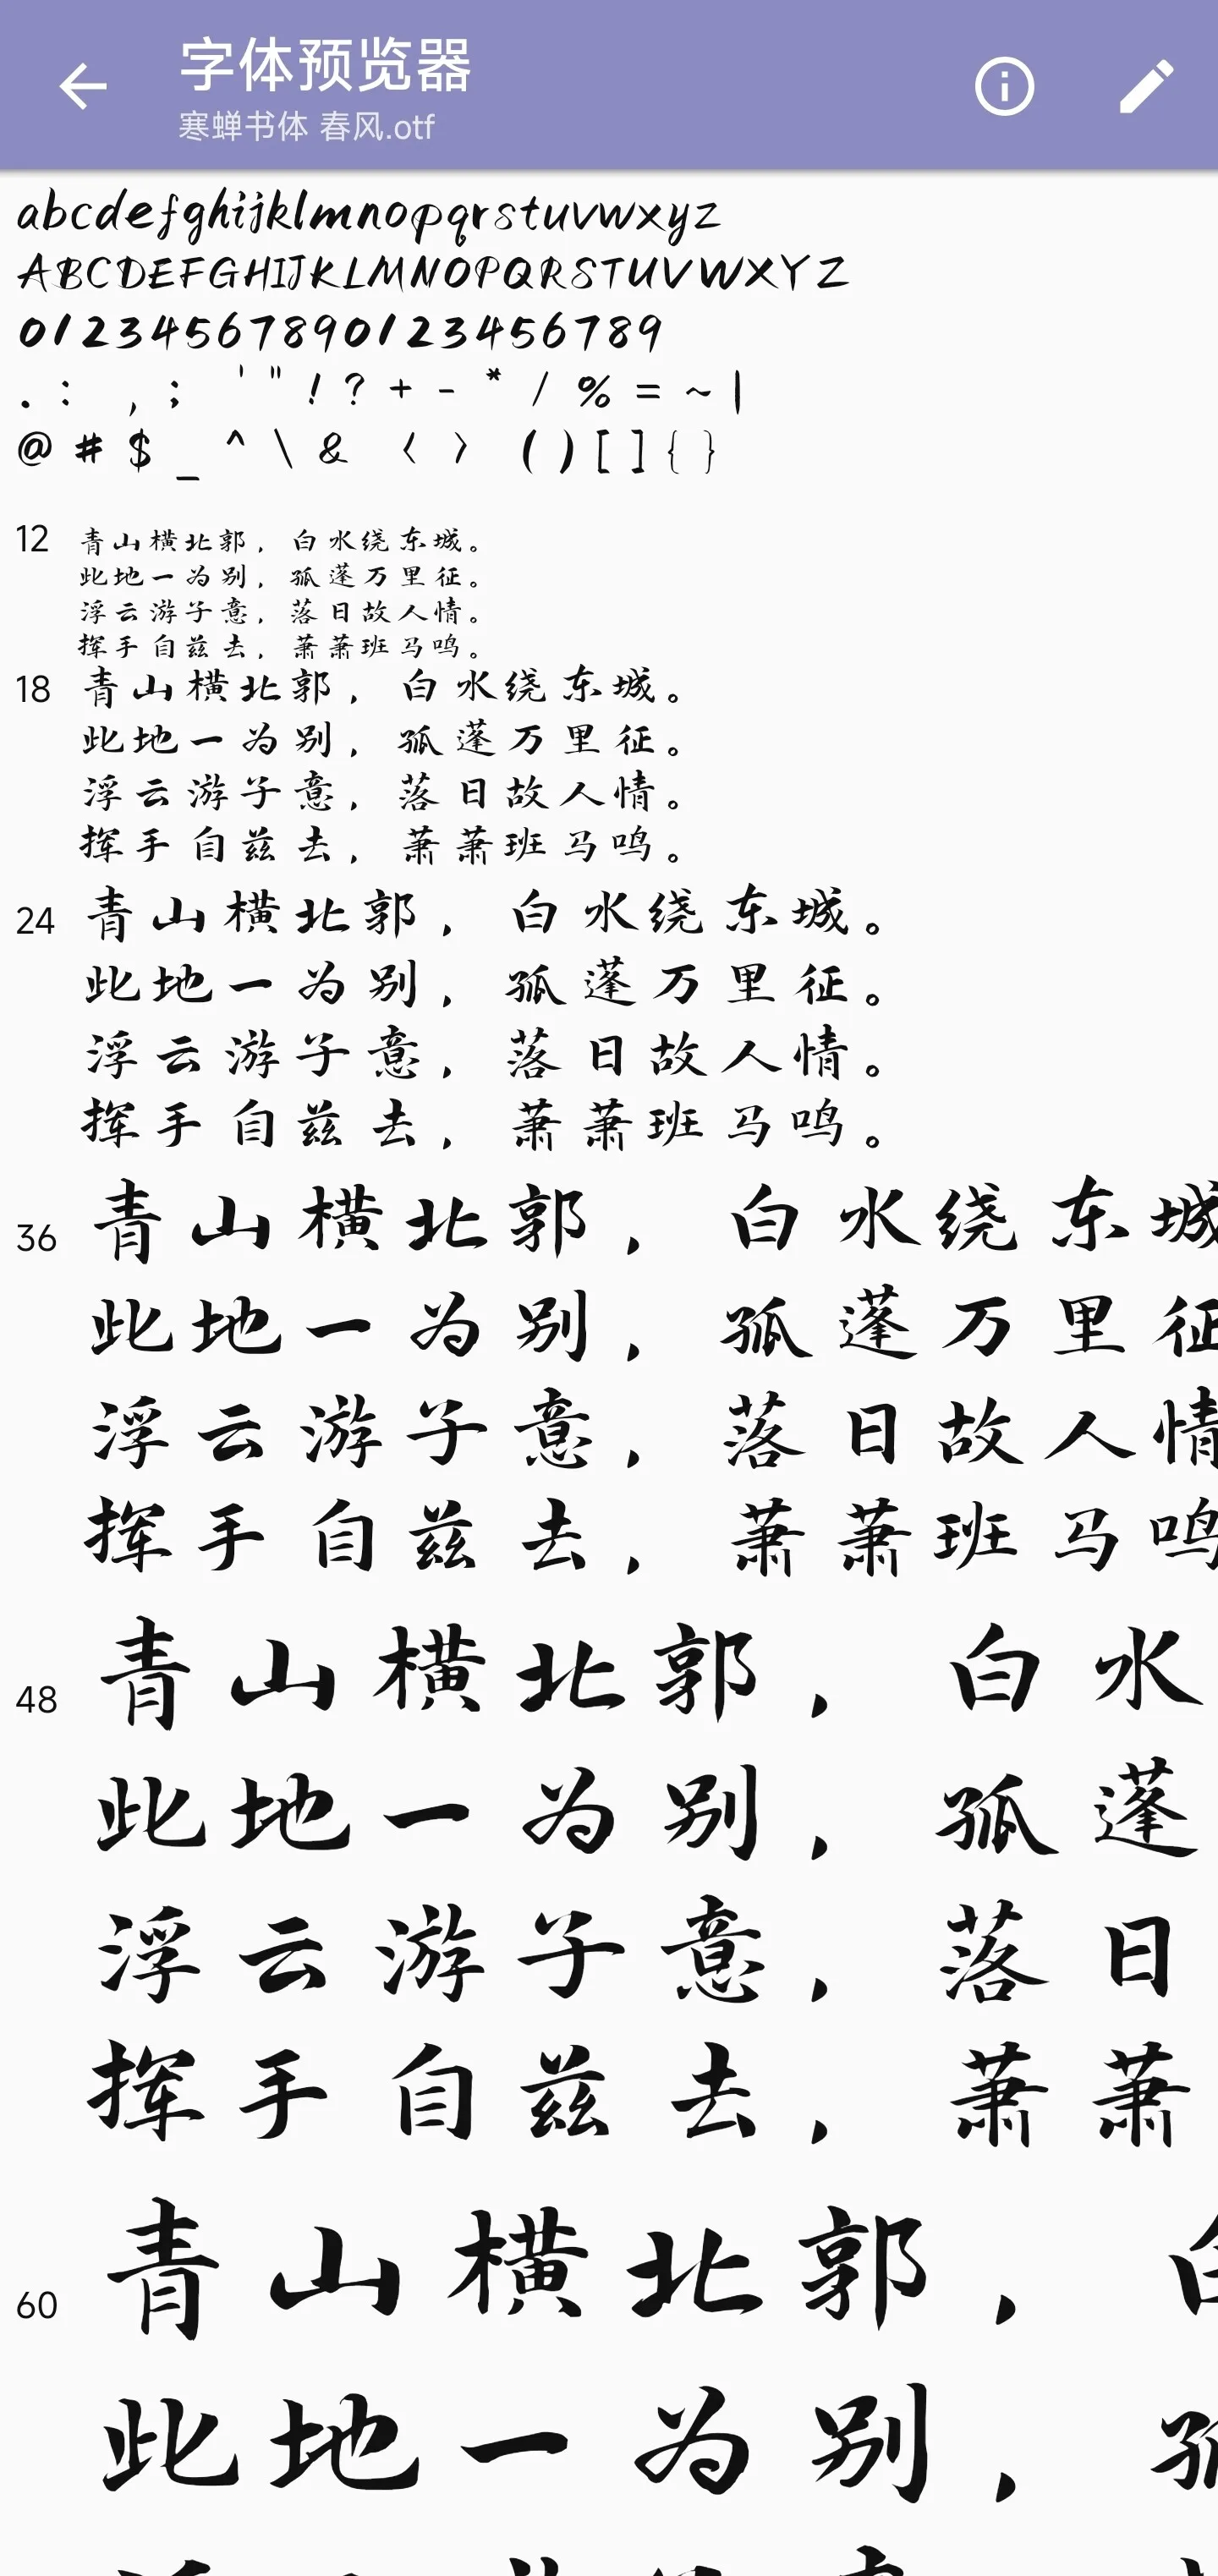 字体预览器
寒蝉书体 春风.otf
abcdefghijklmnopqrstuvwxyz
ABCDEFGHIJKLMNOPQRSTUVWXYZ
01234567890123456789
. : , ; ' " ! ? + - * / % = ~ |
@ # $ _ ^ \ & < > ( ) [ ] { }
12 青山横北郭，白水绕东城。
此地一为别，孤蓬万里征。
浮云游子意，落日故人情。
挥手自兹去，萧萧班马鸣。
18 青山横北郭，白水绕东城。
此地一为别，孤蓬万里征。
浮云游子意，落日故人情。
挥手自兹去，萧萧班马鸣。
24 青山横北郭，白水绕东城。
此地一为别，孤蓬万里征。
浮云游子意，落日故人情。
挥手自兹去，萧萧班马鸣。
36 青山横北郭，白水绕东城
此地一为别，孤蓬万里征
浮云游子意，落日故人情
挥手自兹去，萧萧班马鸣
48 青山横北郭，白水
此地一为别，孤蓬
浮云游子意，落日
挥手自兹去，萧萧
60 青山横北郭，
此地一为别，